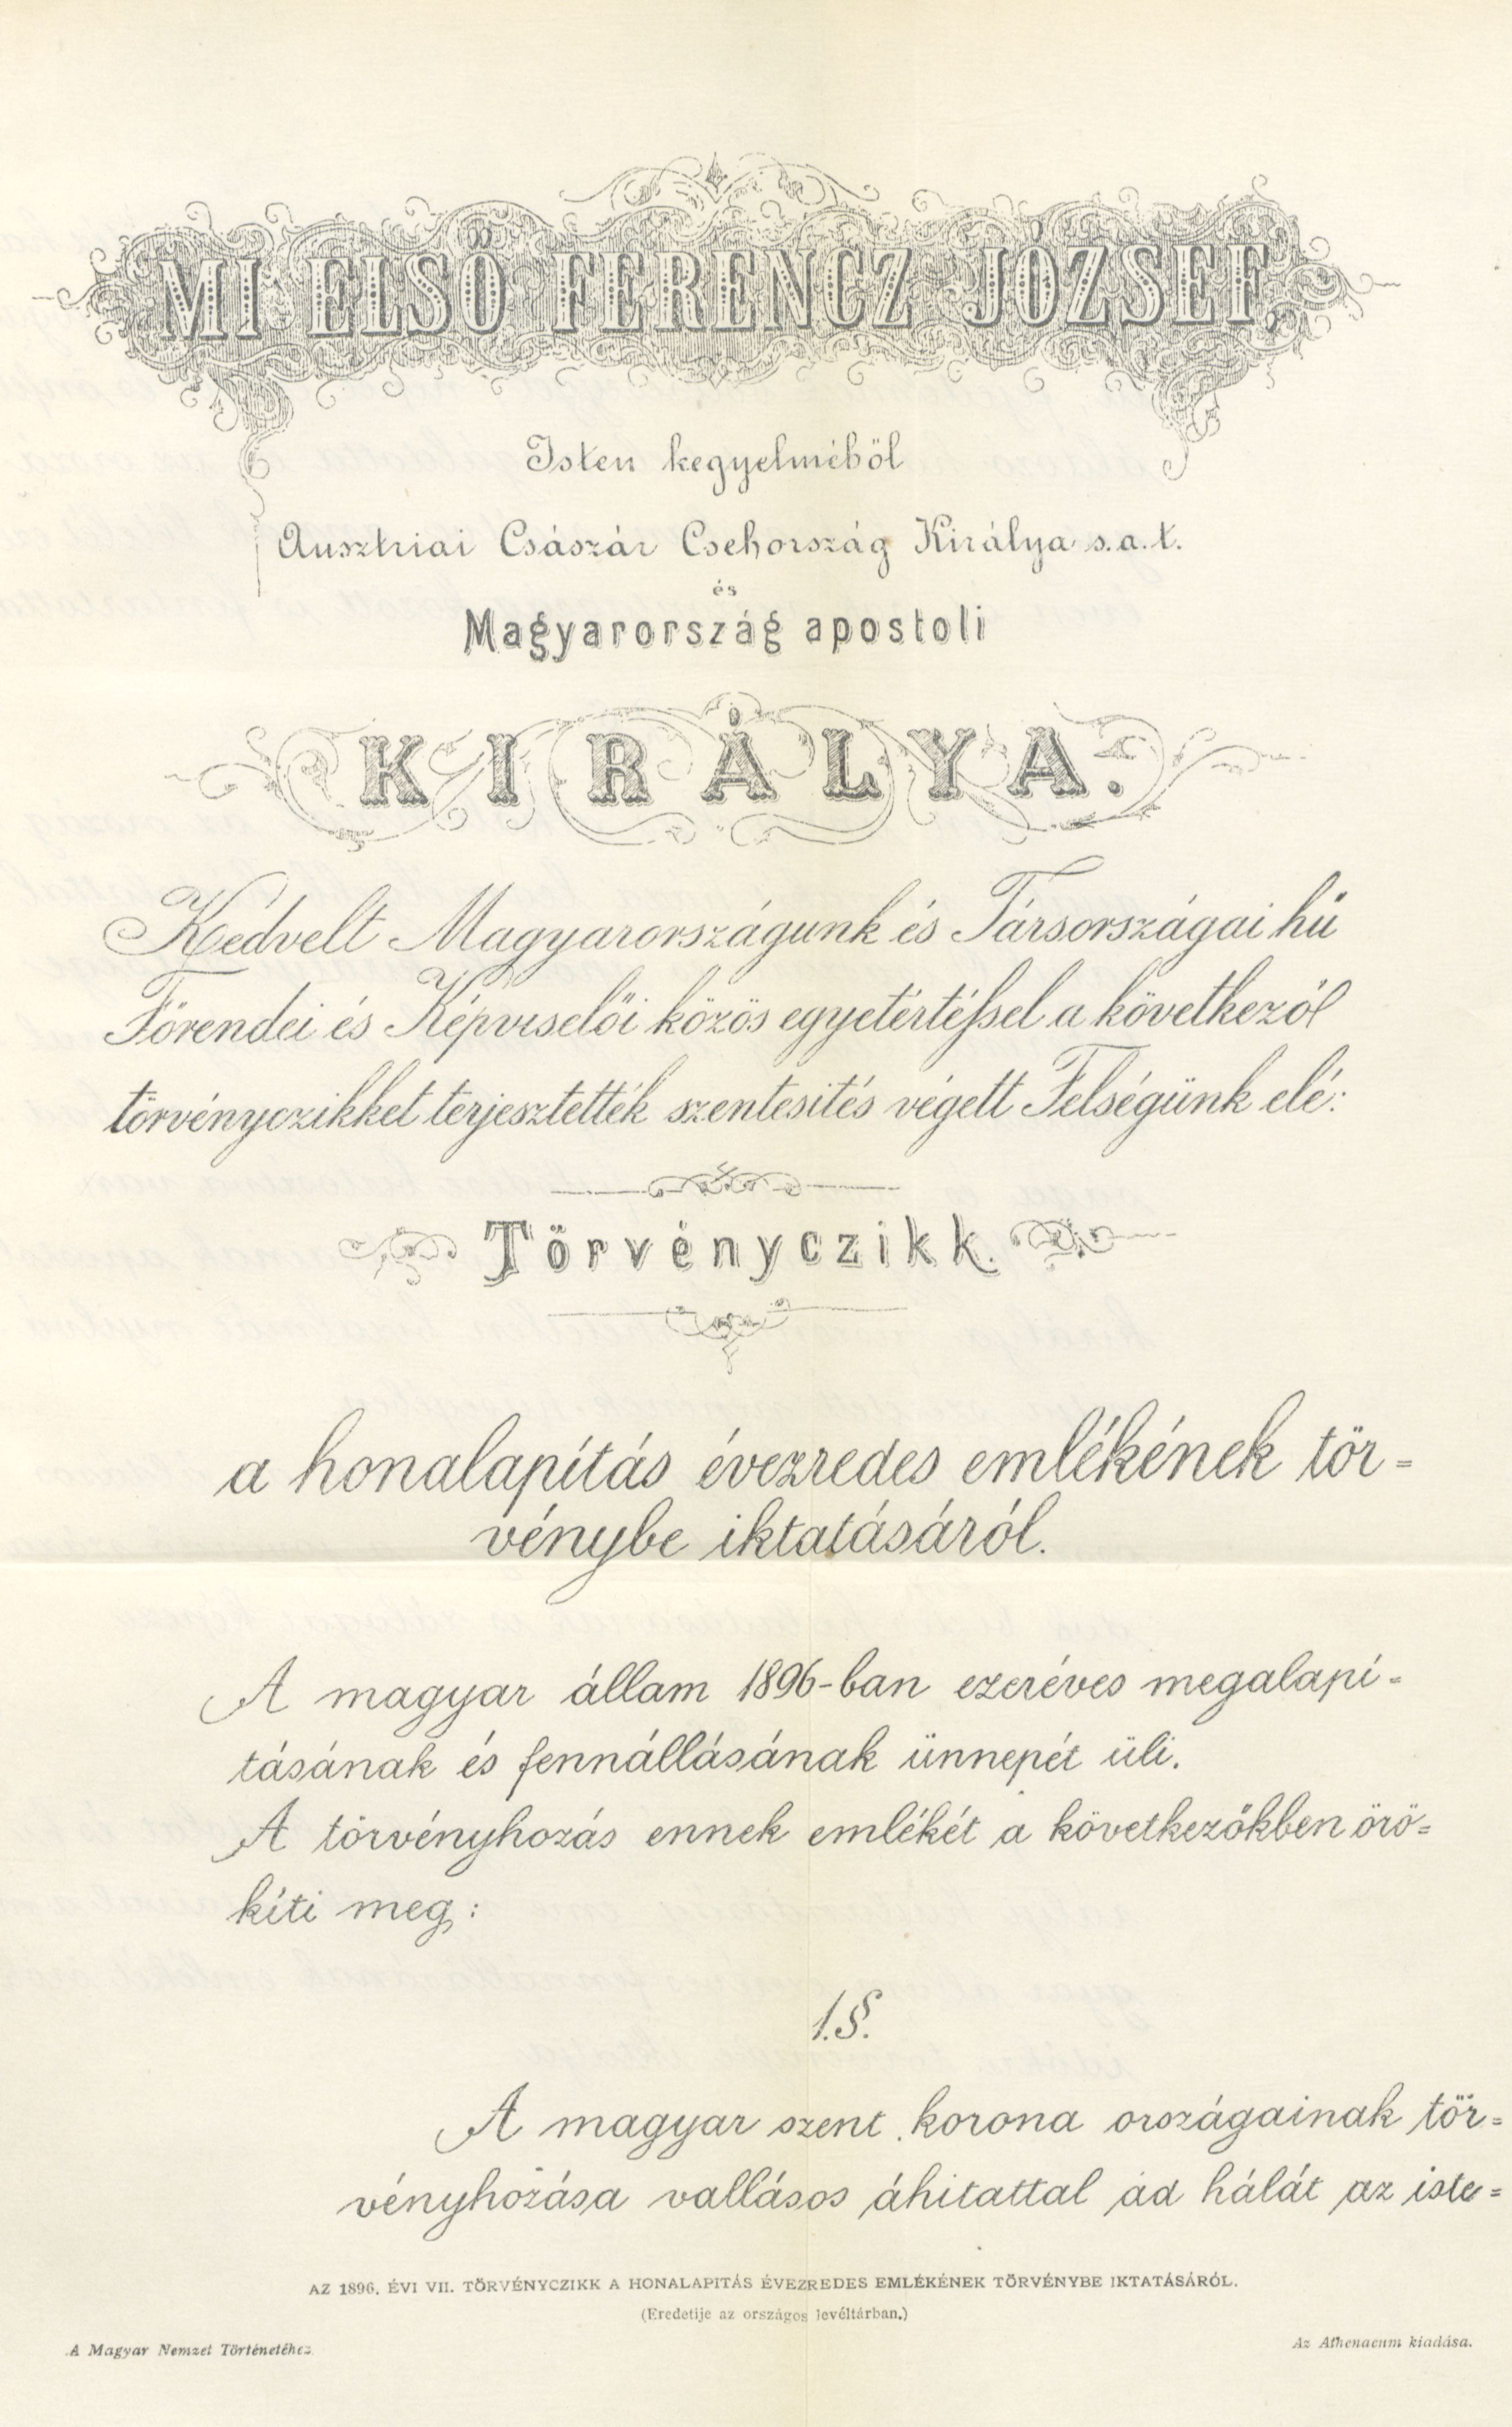 MI ELSŐ FERENCZ JÓZSEF,
Isten kegyelméből
Ausztriai Császár Csehország Királya s.a.t.
és
Magyarország apostoli
KIRÁLYA.
Kedvelt Magyarországunk és Társországai hű
Főrendei és Képviselői közös egyetértéssel a következő
törvényczikket terjesztették szentesítés végett Felségünk elé:
Törvényczikk.
a honalapítás évezredes emlékének tör=
vénybe iktatásáról.
A magyar állam 1896-ban ezeréves megalapí=
tásának és fennállásának ünnepét üli.
A törvényhozás ennek emlékét a következőkben örö=
kíti meg:
1.§.
A magyar szent korona országainak tör=
vényhozása vallásos áhitattal ad hálát az iste=
AZ 1896. ÉVI VII. TÖRVÉNYCZIKK A HONALAPITÁS ÉVEZREDES EMLÉKÉNEK TÖRVÉNYBE IKTATÁSÁRÓL.
(Eredetije az országos levéltárban.)
A Magyar Nemzet Történetéhez
Az Athenaeum kiadása.